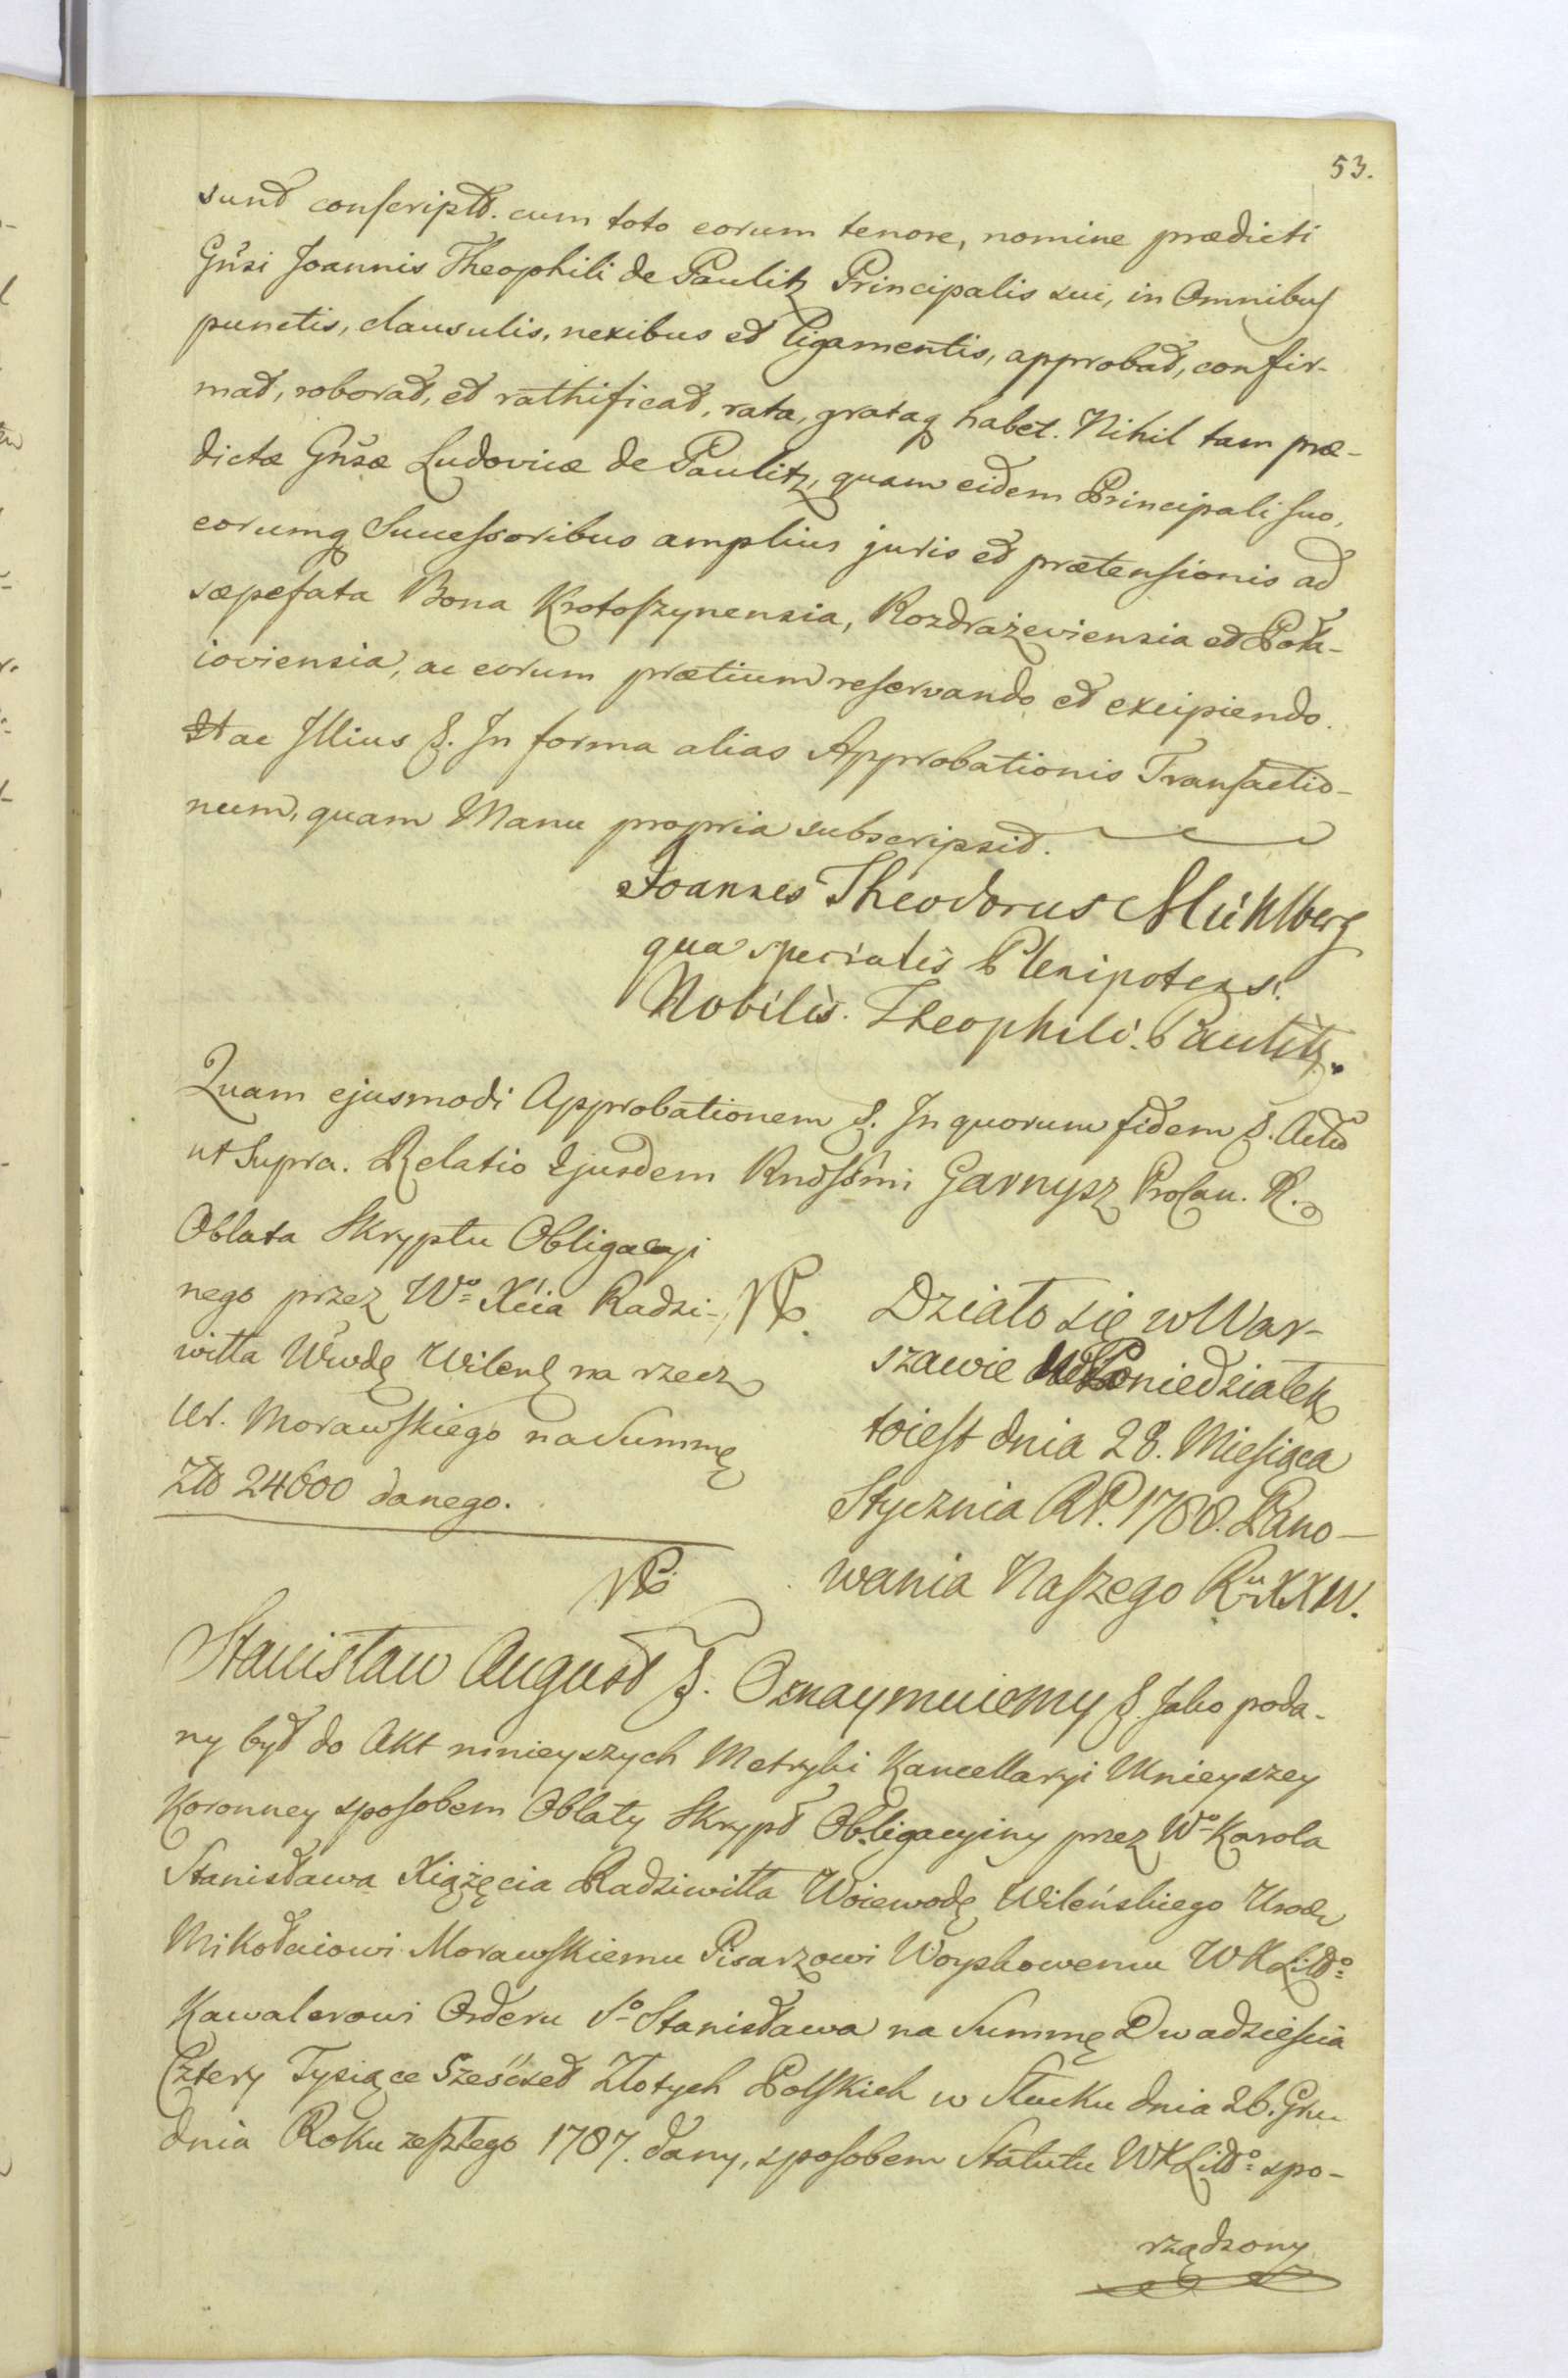 53.
sunt conscript. cum toto eorum tenore, nomine prædicti
Gnsi Joannis Theophili de Paulitz Principalis sui, in Omnibus
punctis, clausulis, nexibus et ligamentis, approbat, confir-
mat, roborat, et rathificat, rata, grataq habet. Nihil tam præ-
dictæ Gnsæ Ludovicæ de Paulitz, quam eidem Principali suo,
eorumq Successoribus amplius juris et prætensionis ad
sæpefata Bona Krotoszynensia, Rozdrażeviensia et
ioviensia, ac eorum prætium reservando et excipiendo.
ac Illius &. In forma alias Approbationis Transactio-
num, quam Manu propria subscripsit.
Joannes Theodorus Mühlberg
qua specialis Plenipotens.
Nobilis. Theophili. Paulitz.
Quam ejusmodi Approbationem &. In quorum fidem &. Act
ut Supra. Relatio Ejusdem Rndssmi Garnysz Procan. R.
Oblata Skryptu Obligacyi
nego przez Wo Xcia Radzi-
wiłła Wwdę Wileń na rzecz
Ur. Morawskiego na Summę
Zło 24600 danego.
Działo się w War-
szawie Poniedziałek
toiest dnia 28. Miesiąca
Stycznia RP. 1788. Pano-
wania Naszego Ru XXIV.
Stanisław August &. Oznaymuiemy &. Jako poda-
ny był do Akt mnieyszych Metryki Kancellaryi Mnieyszey
Koronney sposobem Oblaty Skrypt Obligacyiny przez Wo Karola
Stanisława Xiążęcia Radziwiłła Woiewodę Wileńskiego Urodz
Mikołaiowi Morawskiemu Pisarzowi Woyskowemu WXLitto
Kawalerowi Orderu So Stanisława na Summę Dwadzieścia
Cztery Tysiące Sześćset Złotych Polskich w Słucku dnia 26. Gru
dnia Roku zeszłego 1787. dany, sposobem Statutu WXLitto spo-
rządzony